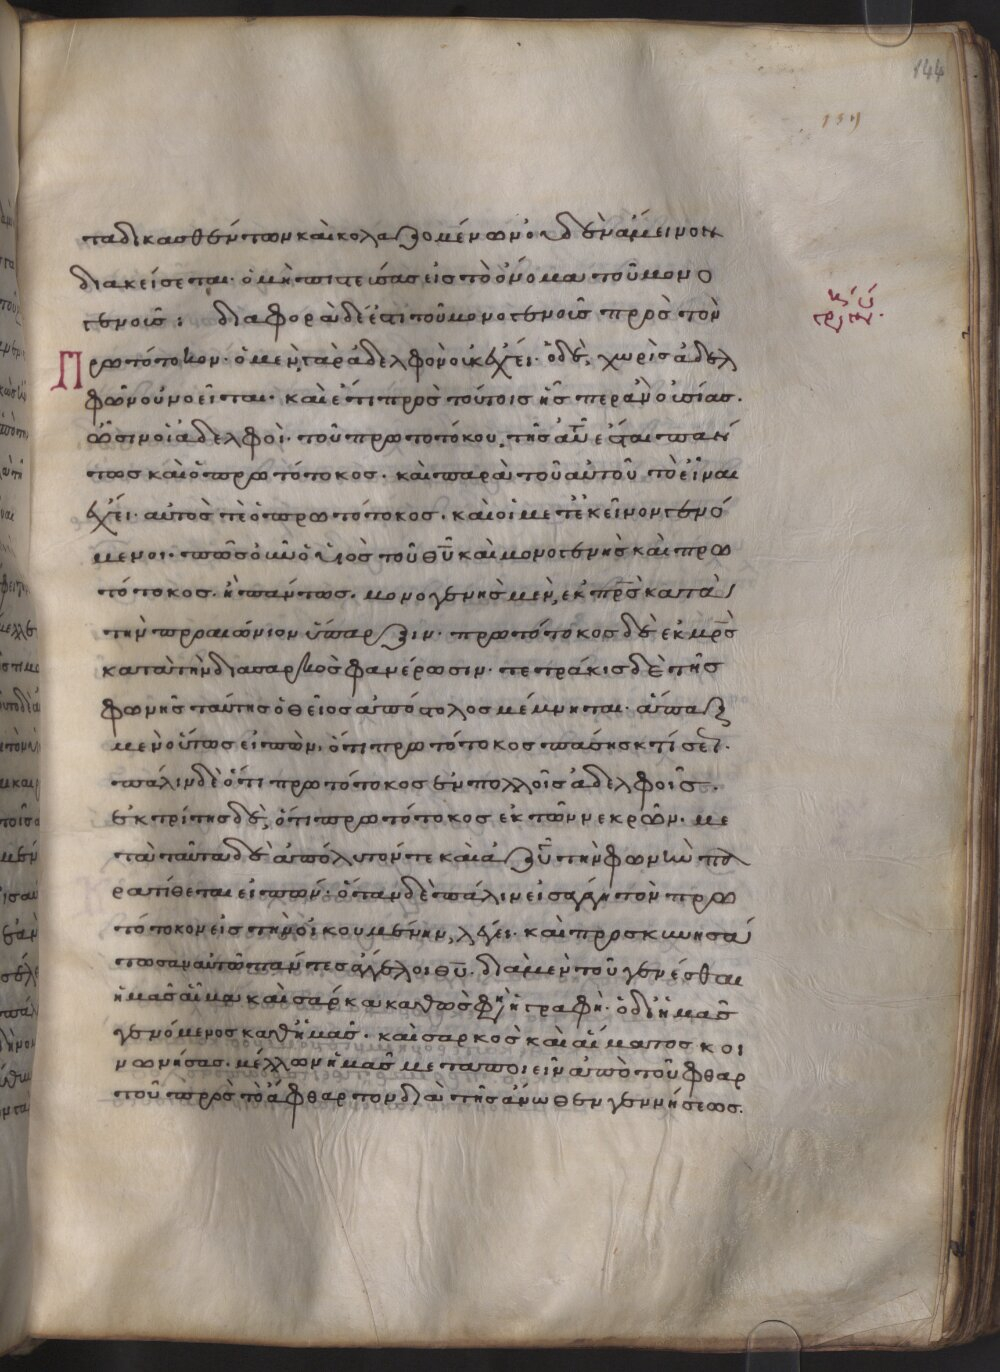 144
τα δικασθέντων και κολαζομένων οὐδὲν ἄμεινον
διακείσεται· ὁ μὴ πιστεύσας εἰς τὸ ὄνομα τοῦ μονο
γενοῦς: διαφορὰ δέ ἐστι τοῦ μονογενοῦς πρὸς τὸν
Πρωτότοκον· ὁ μὲν γὰρ ἀδελφὸν οὐκ ἔχει· ὁ δὲ, χωρὶς ἀδελ
φῶν οὐ νοεῖται· καὶ ἔτι πρὸς τούτοις ἧς περ ἂν οὐσίας·
ὦσιν οἱ ἀδελφοὶ τοῦ πρωτοτόκου, τῆς αὐτῆς ἐστι πάν
τως καὶ ὁ πρωτότοκος· καὶ παρὰ τοῦ αὐτοῦ τὸ εἶναι
ἔχει αὐτὸς τὲ ὁ πρωτότοκος· καὶ οἱ μετ' ἐκεῖνον γενό
μενοι· πῶς οὖν ὁ υἱὸς τοῦ θῦ καὶ μονογενὴς καὶ πρω
τότοκος· ἢ πάντως· μονογενὴς μὲν, ἐκ πρς κατὰ
τὴν προαιώνιον ὕπαρξιν· πρωτότοκος δὲ ἐκ μρς
κατὰ τὴν διὰ σαρκὸς φανέρωσιν· τετράκις δὲ τῆς
φωνῆς ταύτης ὁ θεῖος ἀπόστολος μέμνηται· ἅπαξ
μὲν οὕτως εἰπὼν, ὅτι πρωτότοκος πάσης κτίσεως·
πάλιν δὲ ὅτι πρωτότοκος ἐν πολλοῖς ἀδελφοῖς·
ἐκ τρίτης δὲ, ὅτι πρωτότοκος ἐκ τῶν νεκρῶν· με
τὰ ταῦτα δὲ ἀπόλυτόν τε καὶ ἄζυγον τὴν φωνὴν πα
ρατίθεται εἰπών· ὅταν δὲ πάλιν εἰσαγάγῃ τὸν πρω
τότοκον εἰς τὴν οἰκουμένην, λέγει· καὶ προσκυνησά
τωσαν αὐτῶ πάντες ἄγγελοι θῦ· διὰ μὲν τοῦ γενέσθαι
ἡμᾶς αἷμα καὶ σάρκα καθὼς φησὶν ἡ γραφὴ· ὁ δι' ἡμᾶς
γενόμενος καθ' ἡμᾶς· καὶ σαρκὸς καὶ αἵματος κοι
νωνήσας· μέλλων ἡμᾶς μεταποιεῖν ἀπὸ τοῦ φθαρ
τοῦ πρὸς τὸ ἄφθαρτον διὰ τῆς ἄνωθεν γεννήσεως·